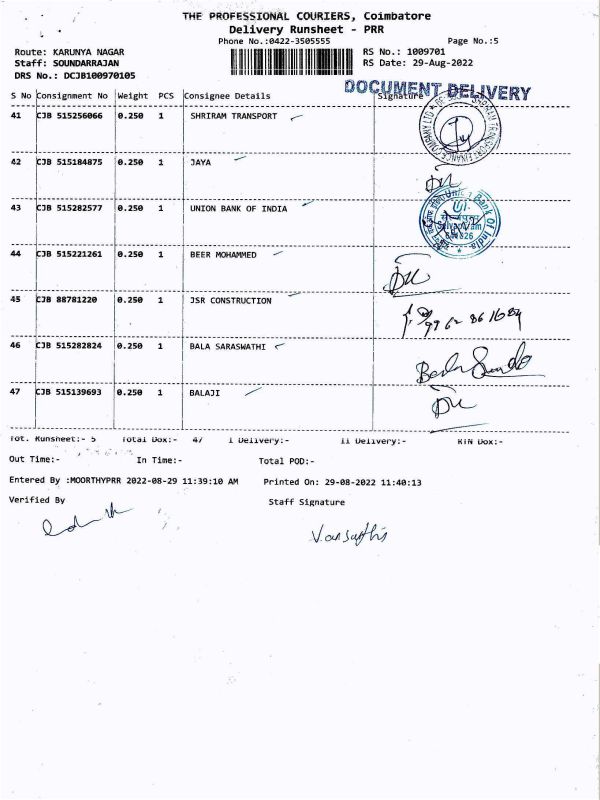 THE PROFESSIONAL COURIERS, Coimbatore
Delivery Runsheet - PRR
Phone No.:0422-3505555 Page No.:5
Route: KARUNYA NAGAR RS No.: 1009701
Staff: SOUNDARRAJAN RS Date: 29-Aug-2022
DRS No.: DCJB100970105
DOCUMENT DELIVERY
S No Consignment No Weight PCS Consignee Details Signature
41 CJB 515256066 0.250 1 SHRIRAM TRANSPORT
42 CJB 515184875 0.250 1 JAYA
43 CJB 515282577 0.250 1 UNION BANK OF INDIA
Union Bank Of India
44 CJB 515221261 0.250 1 BEER MOHAMMED
45 CJB 88781220 0.250 1 JSR CONSTRUCTION
46 CJB 515282824 0.250 1 BALA SARASWATHI
47 CJB 515139693 0.250 1 BALAJI
Tot. Runsheet:- 5 Total Dox:- 47 I Delivery:- II Delivery:- RTN Dox:-
Out Time:- In Time:- Total POD:-
Entered By :MOORTHYPRR 2022-08-29 11:39:10 AM Printed On: 29-08-2022 11:40:13
Verified By Staff Signature